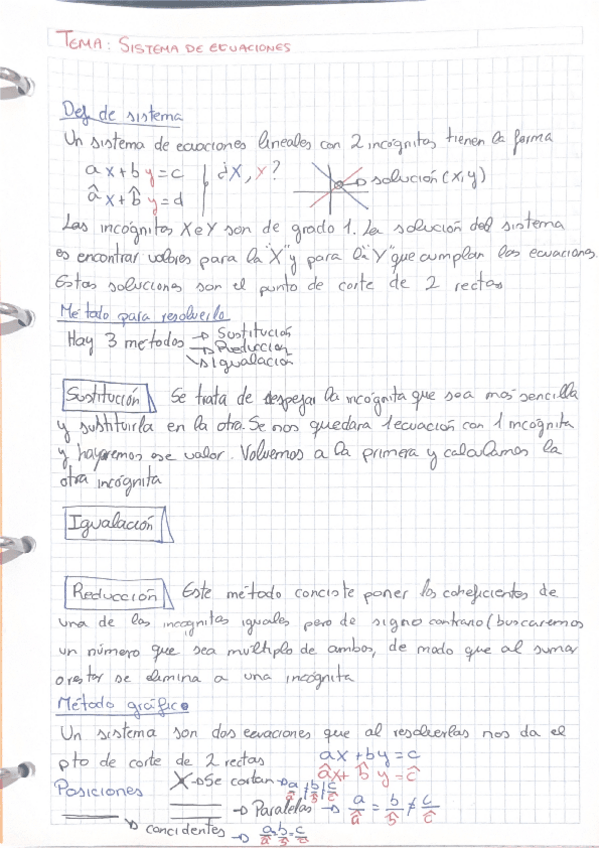 TEMA: SISTEMA DE ECUACIONES
Def de sistema
Un sistema de ecuaciones lineales con 2 incógnitas tienen la forma
ax+by=c ¿X,Y?
âx+b̂y=d solución (x,y)
Las incógnitas X e Y son de grado 1. La solución del sistema
es encontrar valores para la "X" y para la "Y" que cumplan las ecuaciones.
Estas soluciones son el punto de corte de 2 rectas
Método para resolverlo
Hay 3 métodos → Sustitución
→ Reducción
→ Igualación
Sustitución Se trata de despejar la incógnita que sea mas sencilla
y substituirla en la otra. Se nos quedara 1 ecuación con 1 incógnita
y hayaremos ese valor. Volvemos a la primera y calculamos la
otra incógnita
Igualación
Reducción Este método conciste poner los coheficientes de
una de las incognitas iguales pero de signo contrario (buscaremos
un número que sea multiplo de ambos, de modo que al sumar
o restar se elimina a una incógnita
Método gráfico
Un sistema son dos ecuaciones que al resolverlas nos da el
pto de corte de 2 rectas ax+by=c
âx+b̂y=ĉ
Posiciones → Se cortan → a/â ≠ b/b̂ ≠ c/ĉ
→ Paralelas → a/â = b/b̂ ≠ c/ĉ
→ concidentes → a/â = b/b̂ = c/ĉ